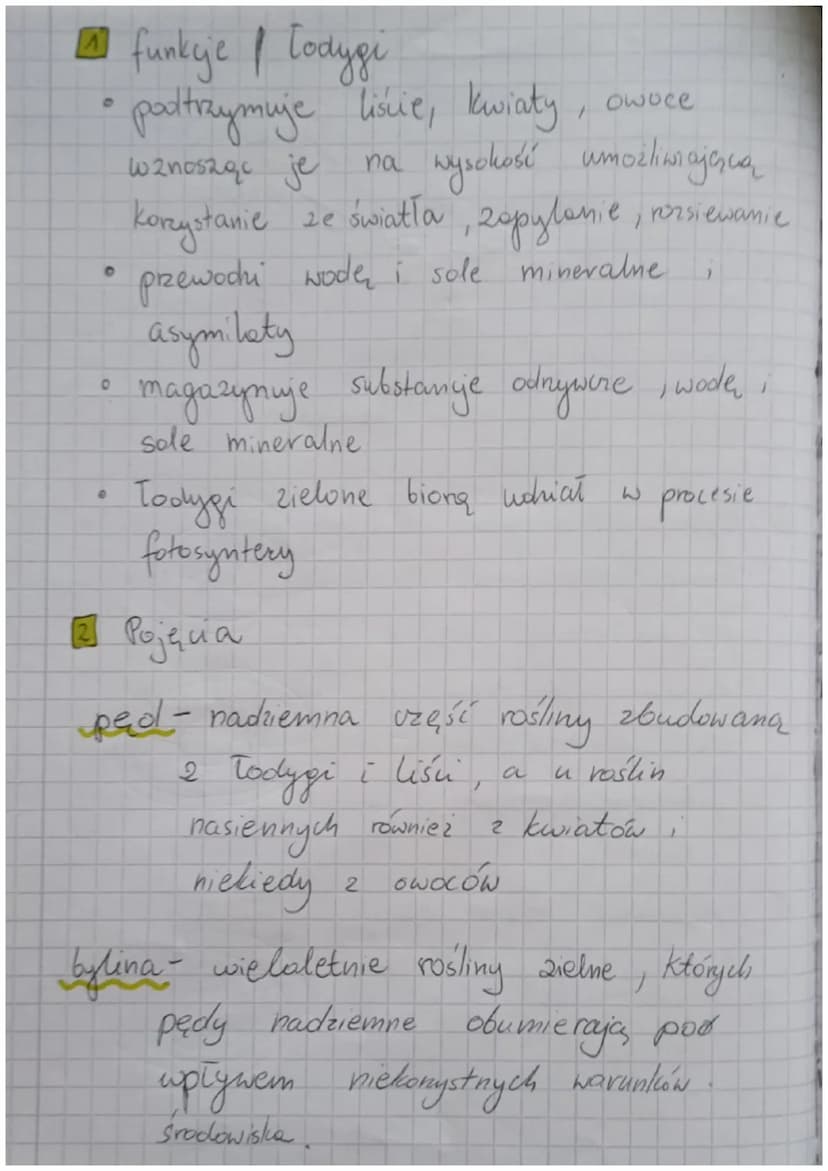 1 funkcje łodygi
• podtrzymuje liście, kwiaty, owoce
wznosząc je na wysokość umożliwiającą
korzystanie ze światła, zapylanie, rozsiewanie
• przewodzi wodę i sole mineralne i
asymilaty
• magazynuje substancje odżywcze, wodę i
sole mineralne
• łodygi zielone biorą udział w procesie
fotosyntezy
2 Pojęcia
pęd - nadziemna część rośliny zbudowana
z łodygi i liści, a u roślin
nasiennych również z kwiatów i
niekiedy z owoców
bylina - wieloletnie rośliny zielne, których
pędy nadziemne obumierają pod
wpływem niekorzystnych warunków
środowiska.